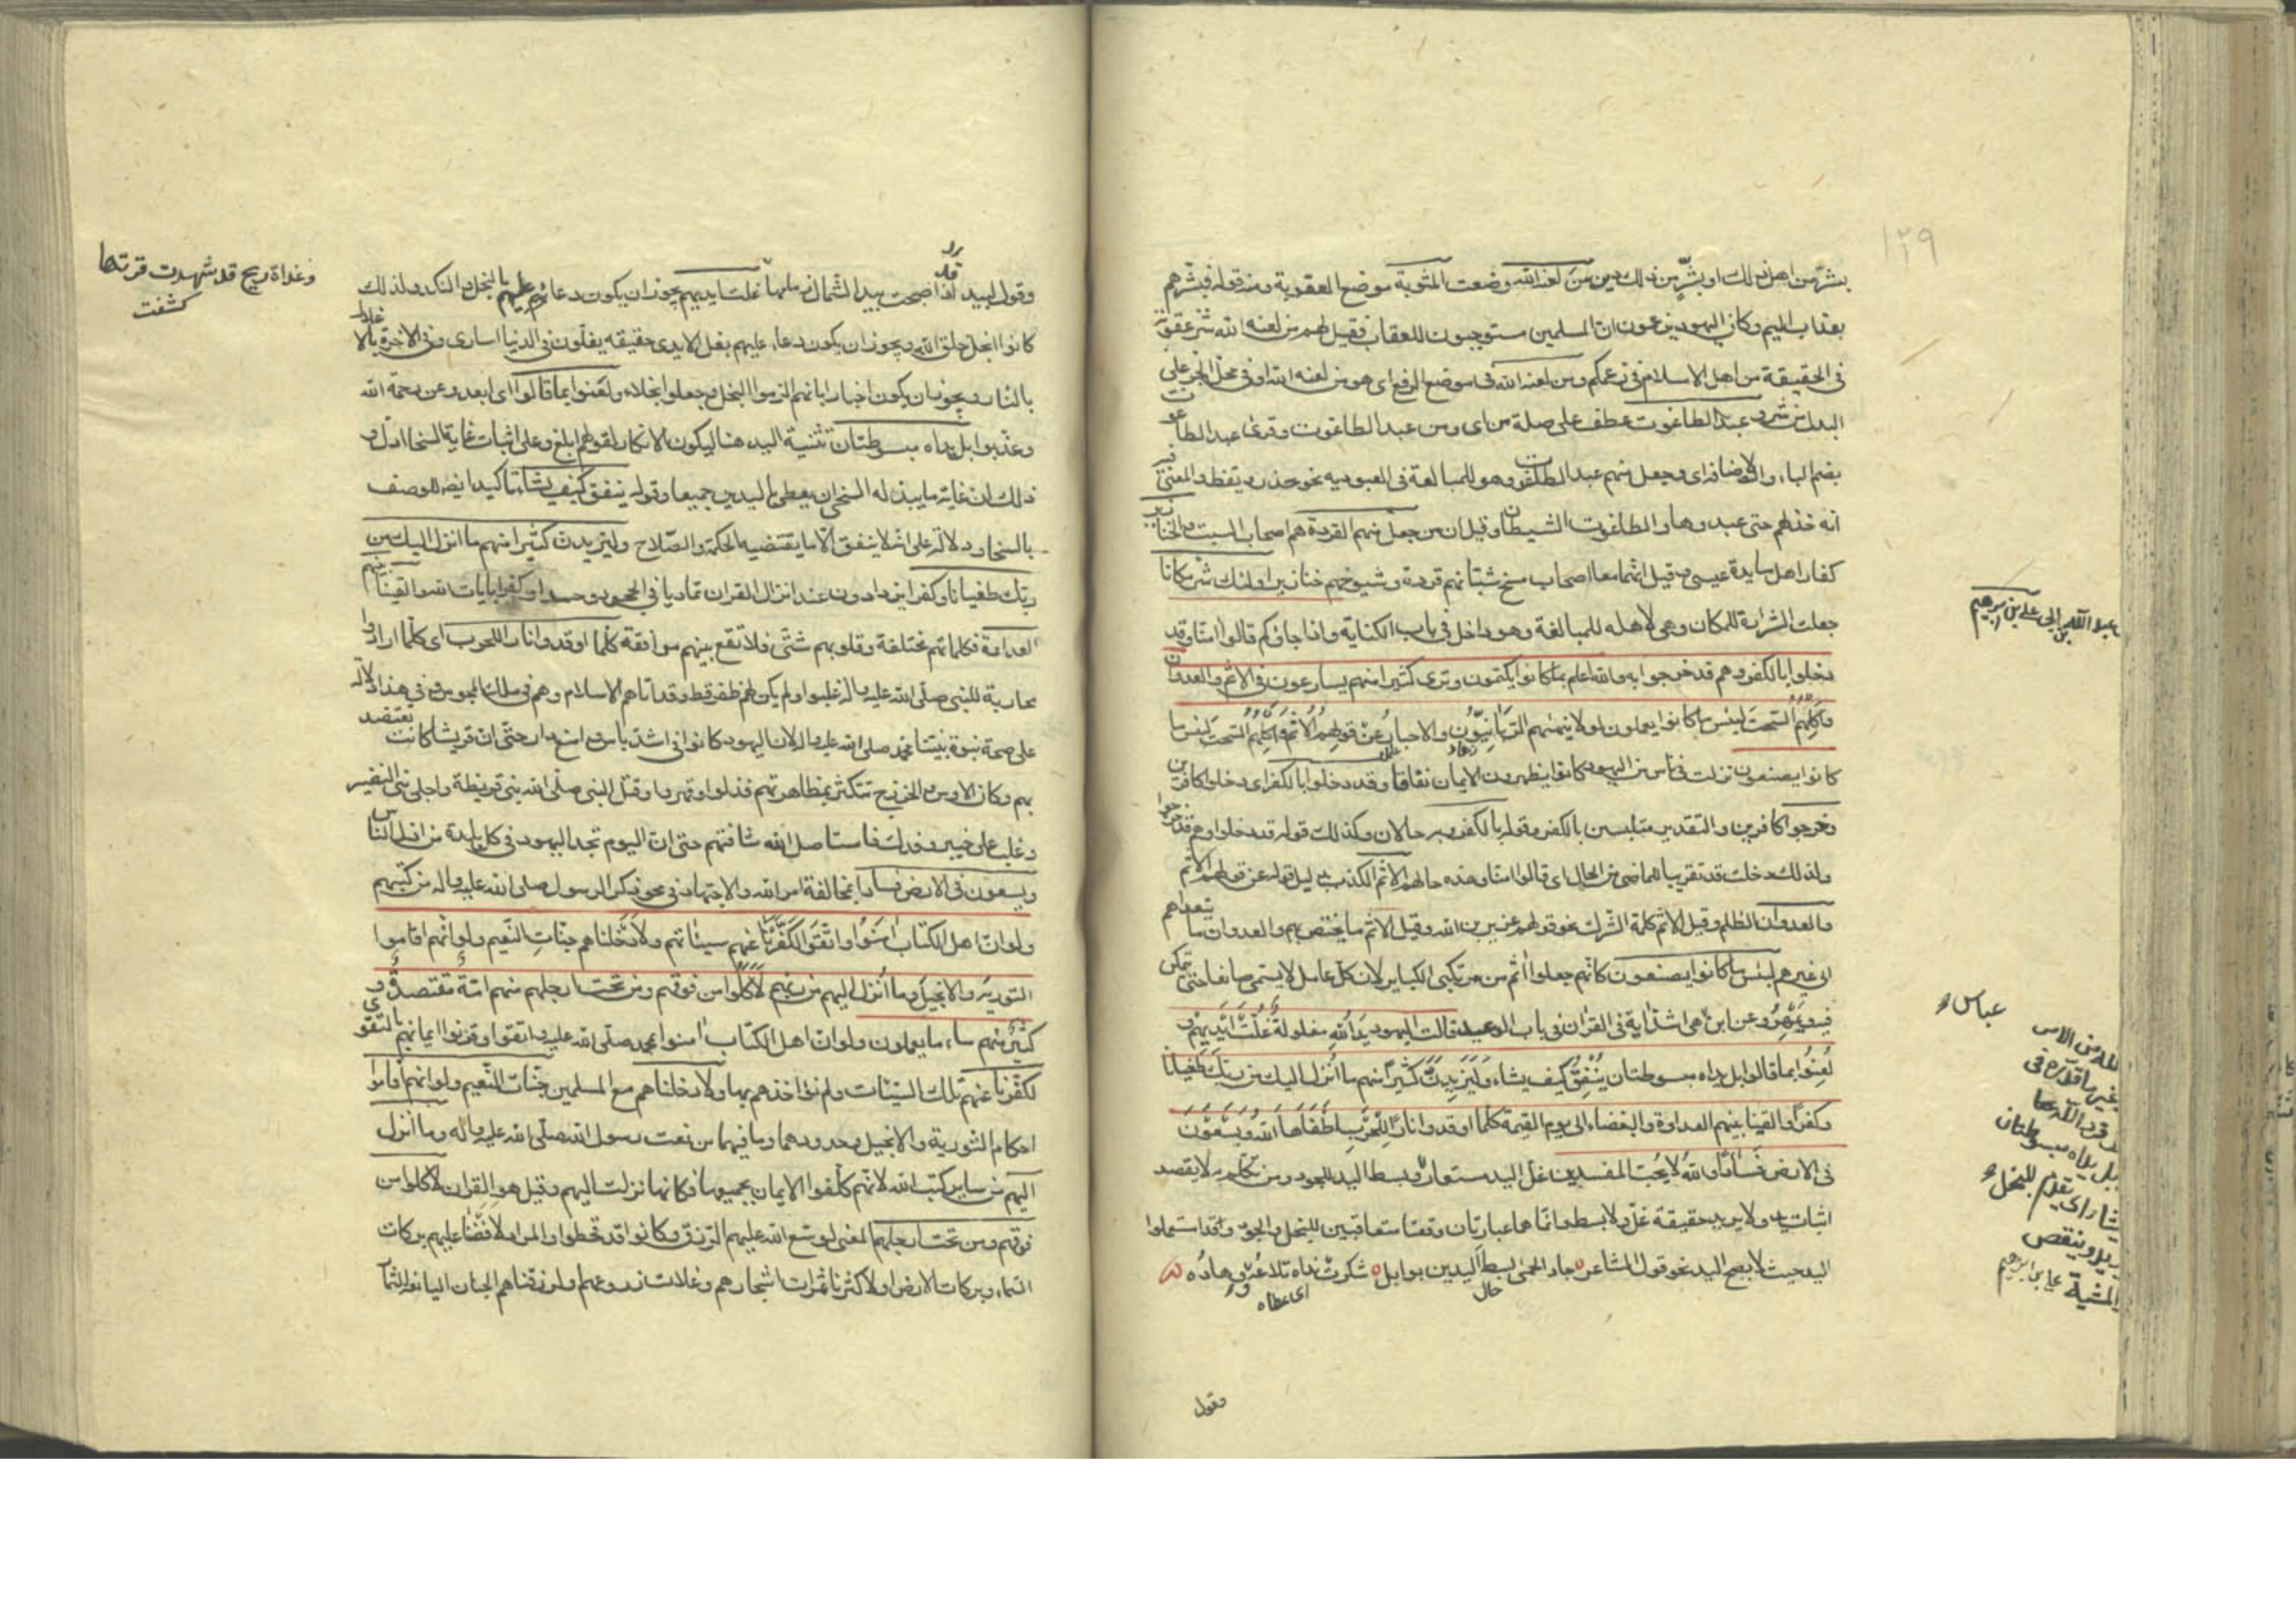 ١٢٩
بشرّ من اهل ذلك او بشرّ من ذلك دين من لعنه الله وضعت المثوبة موضع العقوبة ومنه قوله فبشرهم
بعذاب اليم وكان اليهود يزعمون ان المسلمين مستوجبون للعقاب فقيل لهم من لعنه الله شر عقوبة
فى الحقيقة من اهل الاسلام فى زعمكم ومن لعنه الله فى موضع الرفع اى هو من لعنه الله او فى محل الجر على
البدل من شر وعبد الطاغوت عطف على صلة من اى ومن عبد الطاغوت وقرئ عبد الطاغوت
بضم الباء والاضافة اى وجعل منهم عبد الطاغوت وهو للمبالغة فى العبودية نحو حذر ويقظ والمعنى فيه
انه خذلهم حتى عبدوها والطاغوت الشيطان وقيل ان من جعل منهم القردة هم اصحاب السبت والخنازير
كفار اهل مايدة عيسى وقيل انهما معا اصحاب مسخ شبّانهم قردة وشيوخهم خنازير اولئك شر مكانا
جعلت الشرارة للمكان وهى لاهله للمبالغة وهو داخل فى باب الكناية واذا جاؤكم قالوا امنّا وقد
دخلوا بالكفر وهم قد خرجوا به والله اعلم بما كانوا يكتمون وترى كثيرا منهم يسارعون فى الاثم والعدوان
واكلهم السحت لبئس ما كانوا يعملون لولا ينهٰهم الربانيّون والاحبار عن قولهم الاثم واكلهم السحت لبئس ما
كانوا يصنعون نزلت فى ناس من اليهود كانوا يظهرون الايمان نفاقا وقد دخلوا بالكفر اى دخلوا كافرين
وخرجوا كافرين والتقدير متلبسين بالكفر وقوله بالكفر وبه حالان وكذلك قوله قد دخلوا وهم قد خرجوا
ولذلك دخلت قد تقريبا للماضى من الحال اى قالوا امنا وهذه حالهم الاثم الكذب بدليل قوله عن قولهم الاثم
والعدوان الظلم وقيل الاثم كلمة الشرك نحو قولهم عزير بن الله وقيل الاثم ما يختص بهم والعدوان ما يتعداهم
الى غيرهم لبئس ما كانوا يصنعون كانهم جعلوا اثم من مرتكبى الكباير لان كل عامل لا يسمى صانعا حتى يتمكن
فيه ويتمهر وعن ابن هى اشدّ اية فى القران فى باب الوعيد قالت اليهود يد الله مغلولة غلّت ايديهم و
لعنوا بما قالوا بل يداه مبسوطتان ينفق كيف يشاء وليزيدنّ كثيرا منهم ما انزل اليك من ربك طغيانا
وكفرا والقينا بينهم العداوة والبغضاء الى يوم القيمة كلما اوقدوا نارا للحرب اطفأها الله ويسعون
فى الارض فسادا والله لا يحب المفسدين غلّ اليد مستعار وبسط اليد للجود ومن تكلم به لا يقصد
اثبات يد ولا يريد حقيقة غلّ ولا بسط وانما هما عبارتان وقعتا متعاقبتين للبخل والجود وقد استعملوا
اليد حيث لا يصح اليد نحو قول الشاعر جاد الحمى بسط اليدين بوابل شكرت نداه تلاعه ووهاده
حال
اى عطاه
وقول
عبد الله
على بن ابرهيم
عباس
من الامر
بل يداه مبسوطتان
وينقص
المشية
وقول لبيد قد اذ اصبحت بيد الشمال زمامها غلت ايديهم يجوز ان يكون دعاء عليهم بالبخل والنكد ولذلك
كانوا ابخل خلق الله ويجوز ان يكون دعاء عليهم بغل الايدى حقيقة يغلّون فى الدنيا اسارى وفى الاخرة بالاغلال
بالنار ويجوز ان يكون اخبارا بانهم الزموا البخل وجعلوا بخلاء ولعنوا بما قالوا اى ابعدوا عن رحمة الله
وعذبوا بل يداه مبسوطتان تثنية اليد هنا ليكون الانكار لقولهم ابلغ وعلى اثبات غاية السخا ادلّ و
ذلك ان غاية ما يبذله السخى ان يعطى باليدين جميعا وقوله ينفق كيف يشاء تاكيد ايضا للوصف
بالسخا ودلالة على انه لا ينفق الّا ما يقتضيه الحكمة والصّلاح وليزيدن كثيرا منهم ما انزل اليك من
ربّك طغيانا وكفرا اى يزدادون عند انزال القران تماديا فى الجحود وحسدا وكفرا بايات الله والقينا بينهم
العداوة فكلماتهم مختلفة وقلوبهم شتى فلا تقع بينهم موافقة كلّما اوقدوا نارا للحرب اى كلّما ارادوا
محاربة للنبى صلّى الله عليه واله غلبوا ولم يكن لهم ظفر قط وقد اتاهم الاسلام وهم فى ملك المجوس وفى هذا دلالة
على صحة نبوة نبيّنا محمد صلى الله عليه واله لان اليهود كانوا فى اشدّ باس وامنع دار حتى ان قريشا كانت تعتضد
بهم وكان الاوس والخزرج تتكثر بمظاهرتهم فذلوا وقهروا وقتل النبى صلى الله بنى قريظة واجلى بنى النضير
وغلب على خيبر وفدك فاستاصل الله شافتهم حتى ان اليوم تجد اليهود فى كل بلدة من اذل الناس
ويسعون فى الارض فسادا بمخالفة امر الله والاجتهاد فى محو ذكر الرسول صلى الله عليه واله من كتبهم
ولو انّ اهل الكتاب امنوا واتّقوا لكفّرنا عنهم سيئاتهم ولادخلناهم جنّات النّعيم ولو انّهم اقاموا
التورية والانجيل وما انزل اليهم من ربهم لاكلوا من فوقهم ومن تحت ارجلهم منهم امّة مقتصدة و
كثير منهم ساء ما يعملون ولو ان اهل الكتاب امنوا بمحمد صلى الله عليه واله واتقوا وقرنوا ايمانهم بالتقوى
لكفّرنا عنهم تلك السيّئات ولم نؤاخذهم بها ولادخلناهم مع المسلمين جنّات النّعيم ولو انهم اقاموا
احكام التورية والانجيل وحدودهما وما فيهما من نعت رسول الله صلّى الله عليه واله وما انزل
اليهم من ساير كتب الله لانهم كلّفوا الايمان بجميعها فكانها نزلت اليهم وقيل هو القران لاكلوا من
فوقهم ومن تحت ارجلهم المعنى لوسّع الله عليهم الرّزق وكانوا قد قحطوا والمراد لافضنا عليهم بركات
السّماء وبركات الارض او لاكثرنا ثمرات اشجارهم وغلات زروعهم او لرزقناهم الجنان اليانعة الثمار
وغداة ريح قد شهدت قرتها
كشفت